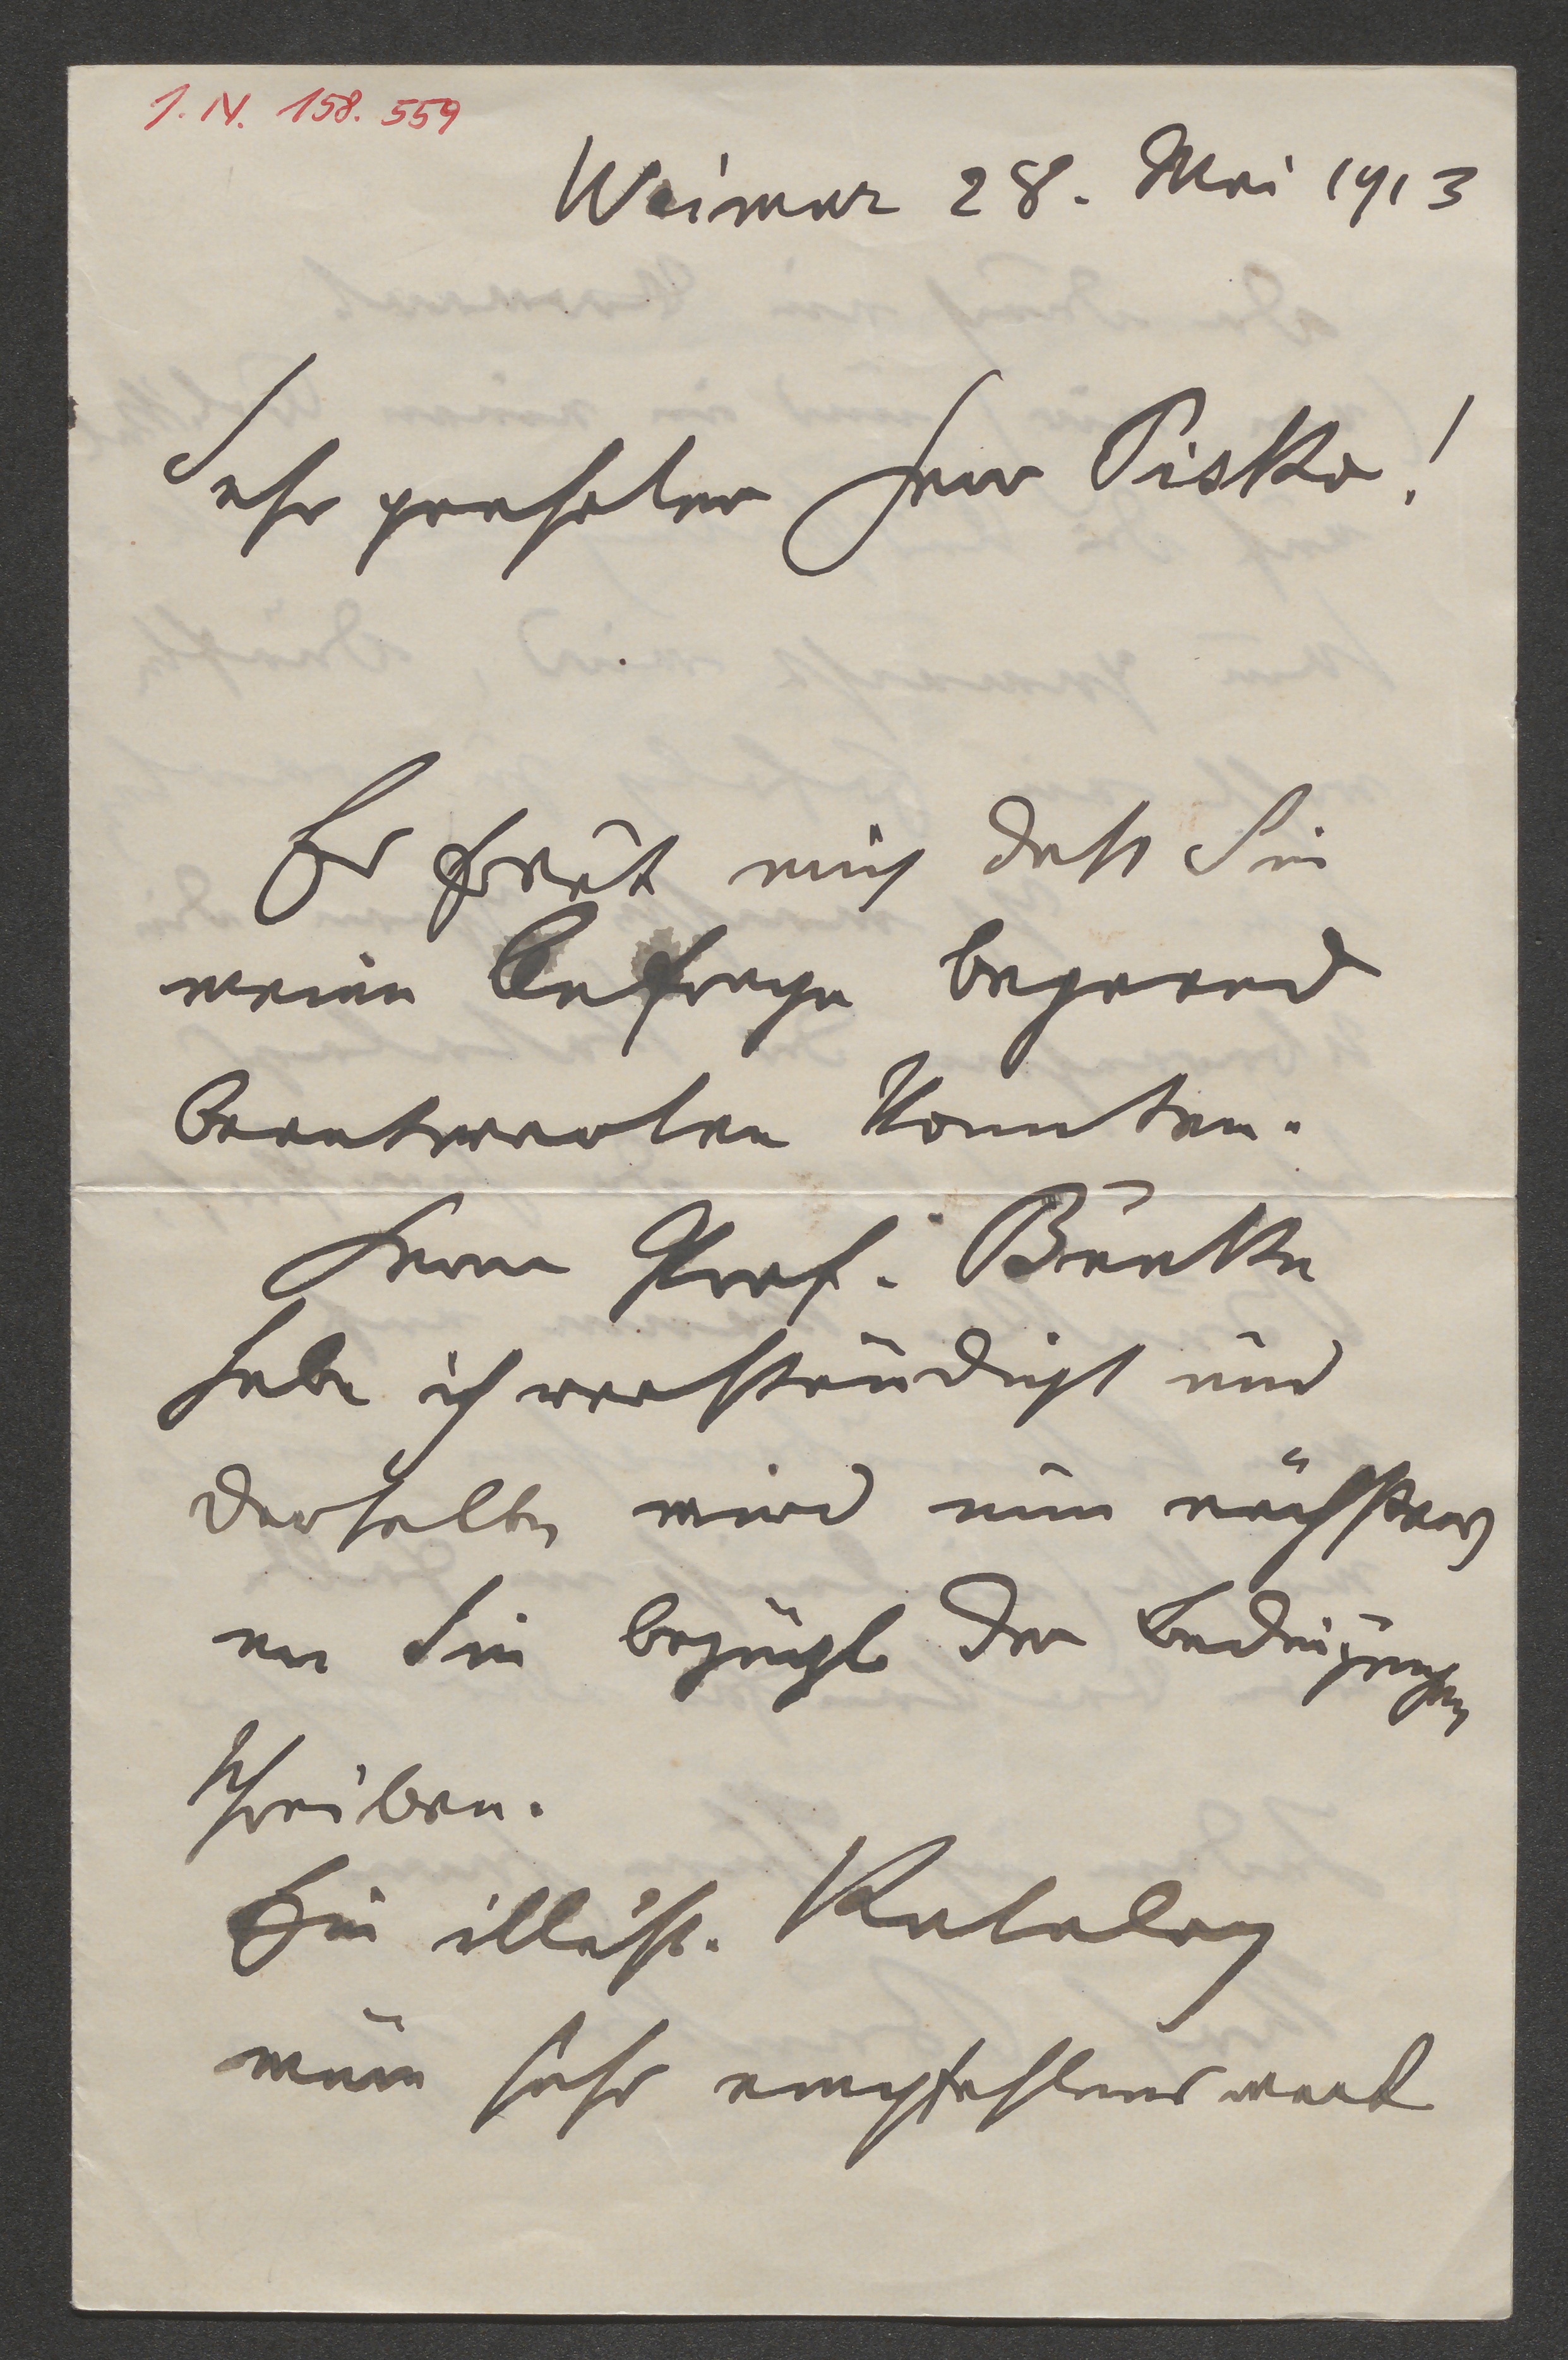 I. N. 158.559
Weimar 28. Mai 1913
Sehr geehrter Herr Pisko!
Es freut mich dass Sie
meine Anfrage
beantworten konnten.
Herrn Prof. Bunke
habe ich verständigt und
derselbe wird nun nächstens
an Sie bezügl der Bedingungen
schreiben.
Ein illustr. Katalog
wäre sehr empfehlenswert